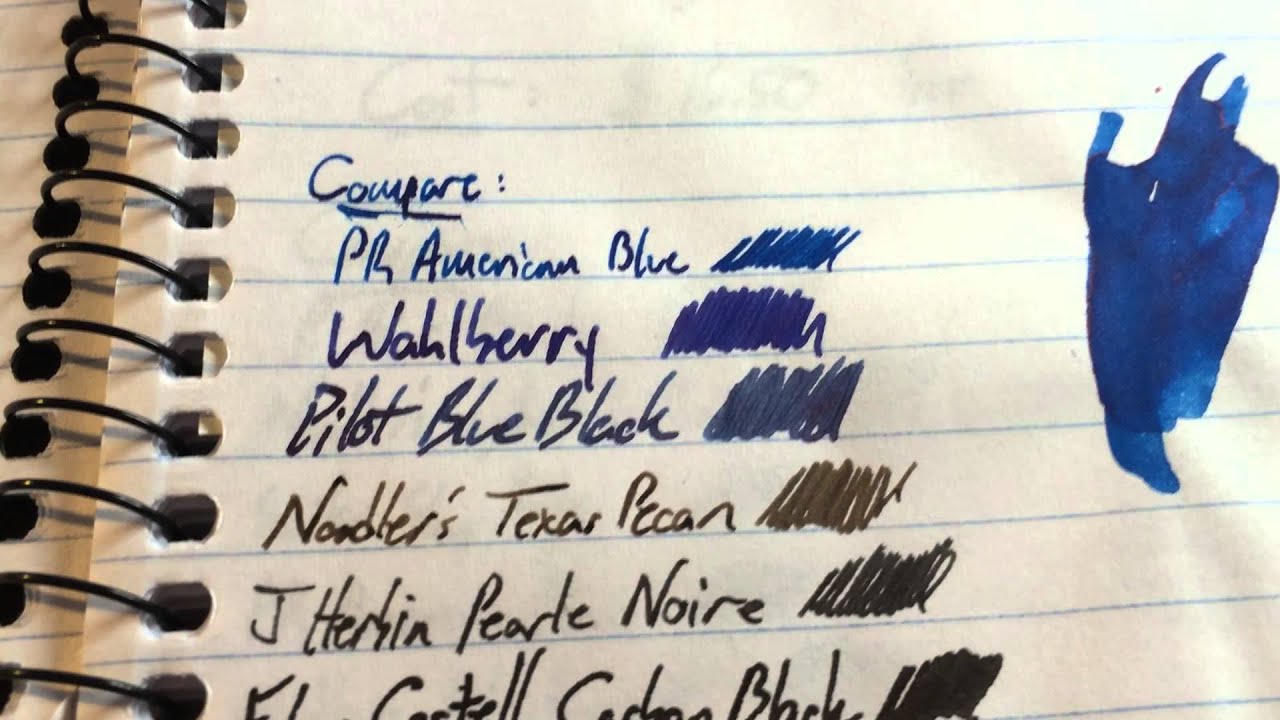 Compare:
PR American Blue
Wahlberry
Pilot Blue Black
Noodler's Texas Pecan
J Herbin Pearle Noire
Castell Carbon Black